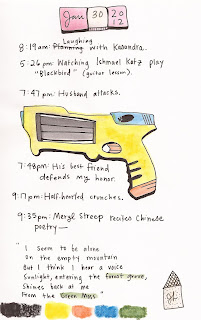 Jan 30 2012
Laughing
8:19am: Planning with Kasandra.
5:26pm: Watching Ishmael Katz play
"Blackbird" (guitar lesson).
7:47pm: Husband attacks.
7:48pm: His best friend
defends my honor.
9:17pm: Half-hearted crunches.
9:35pm: Meryl Streep recites Chinese
poetry—
" I seem to be alone
On the empty mountain
But I think I hear a voice
Sunlight, entering the forest grove,
Shines back at me
From the Green Moss "